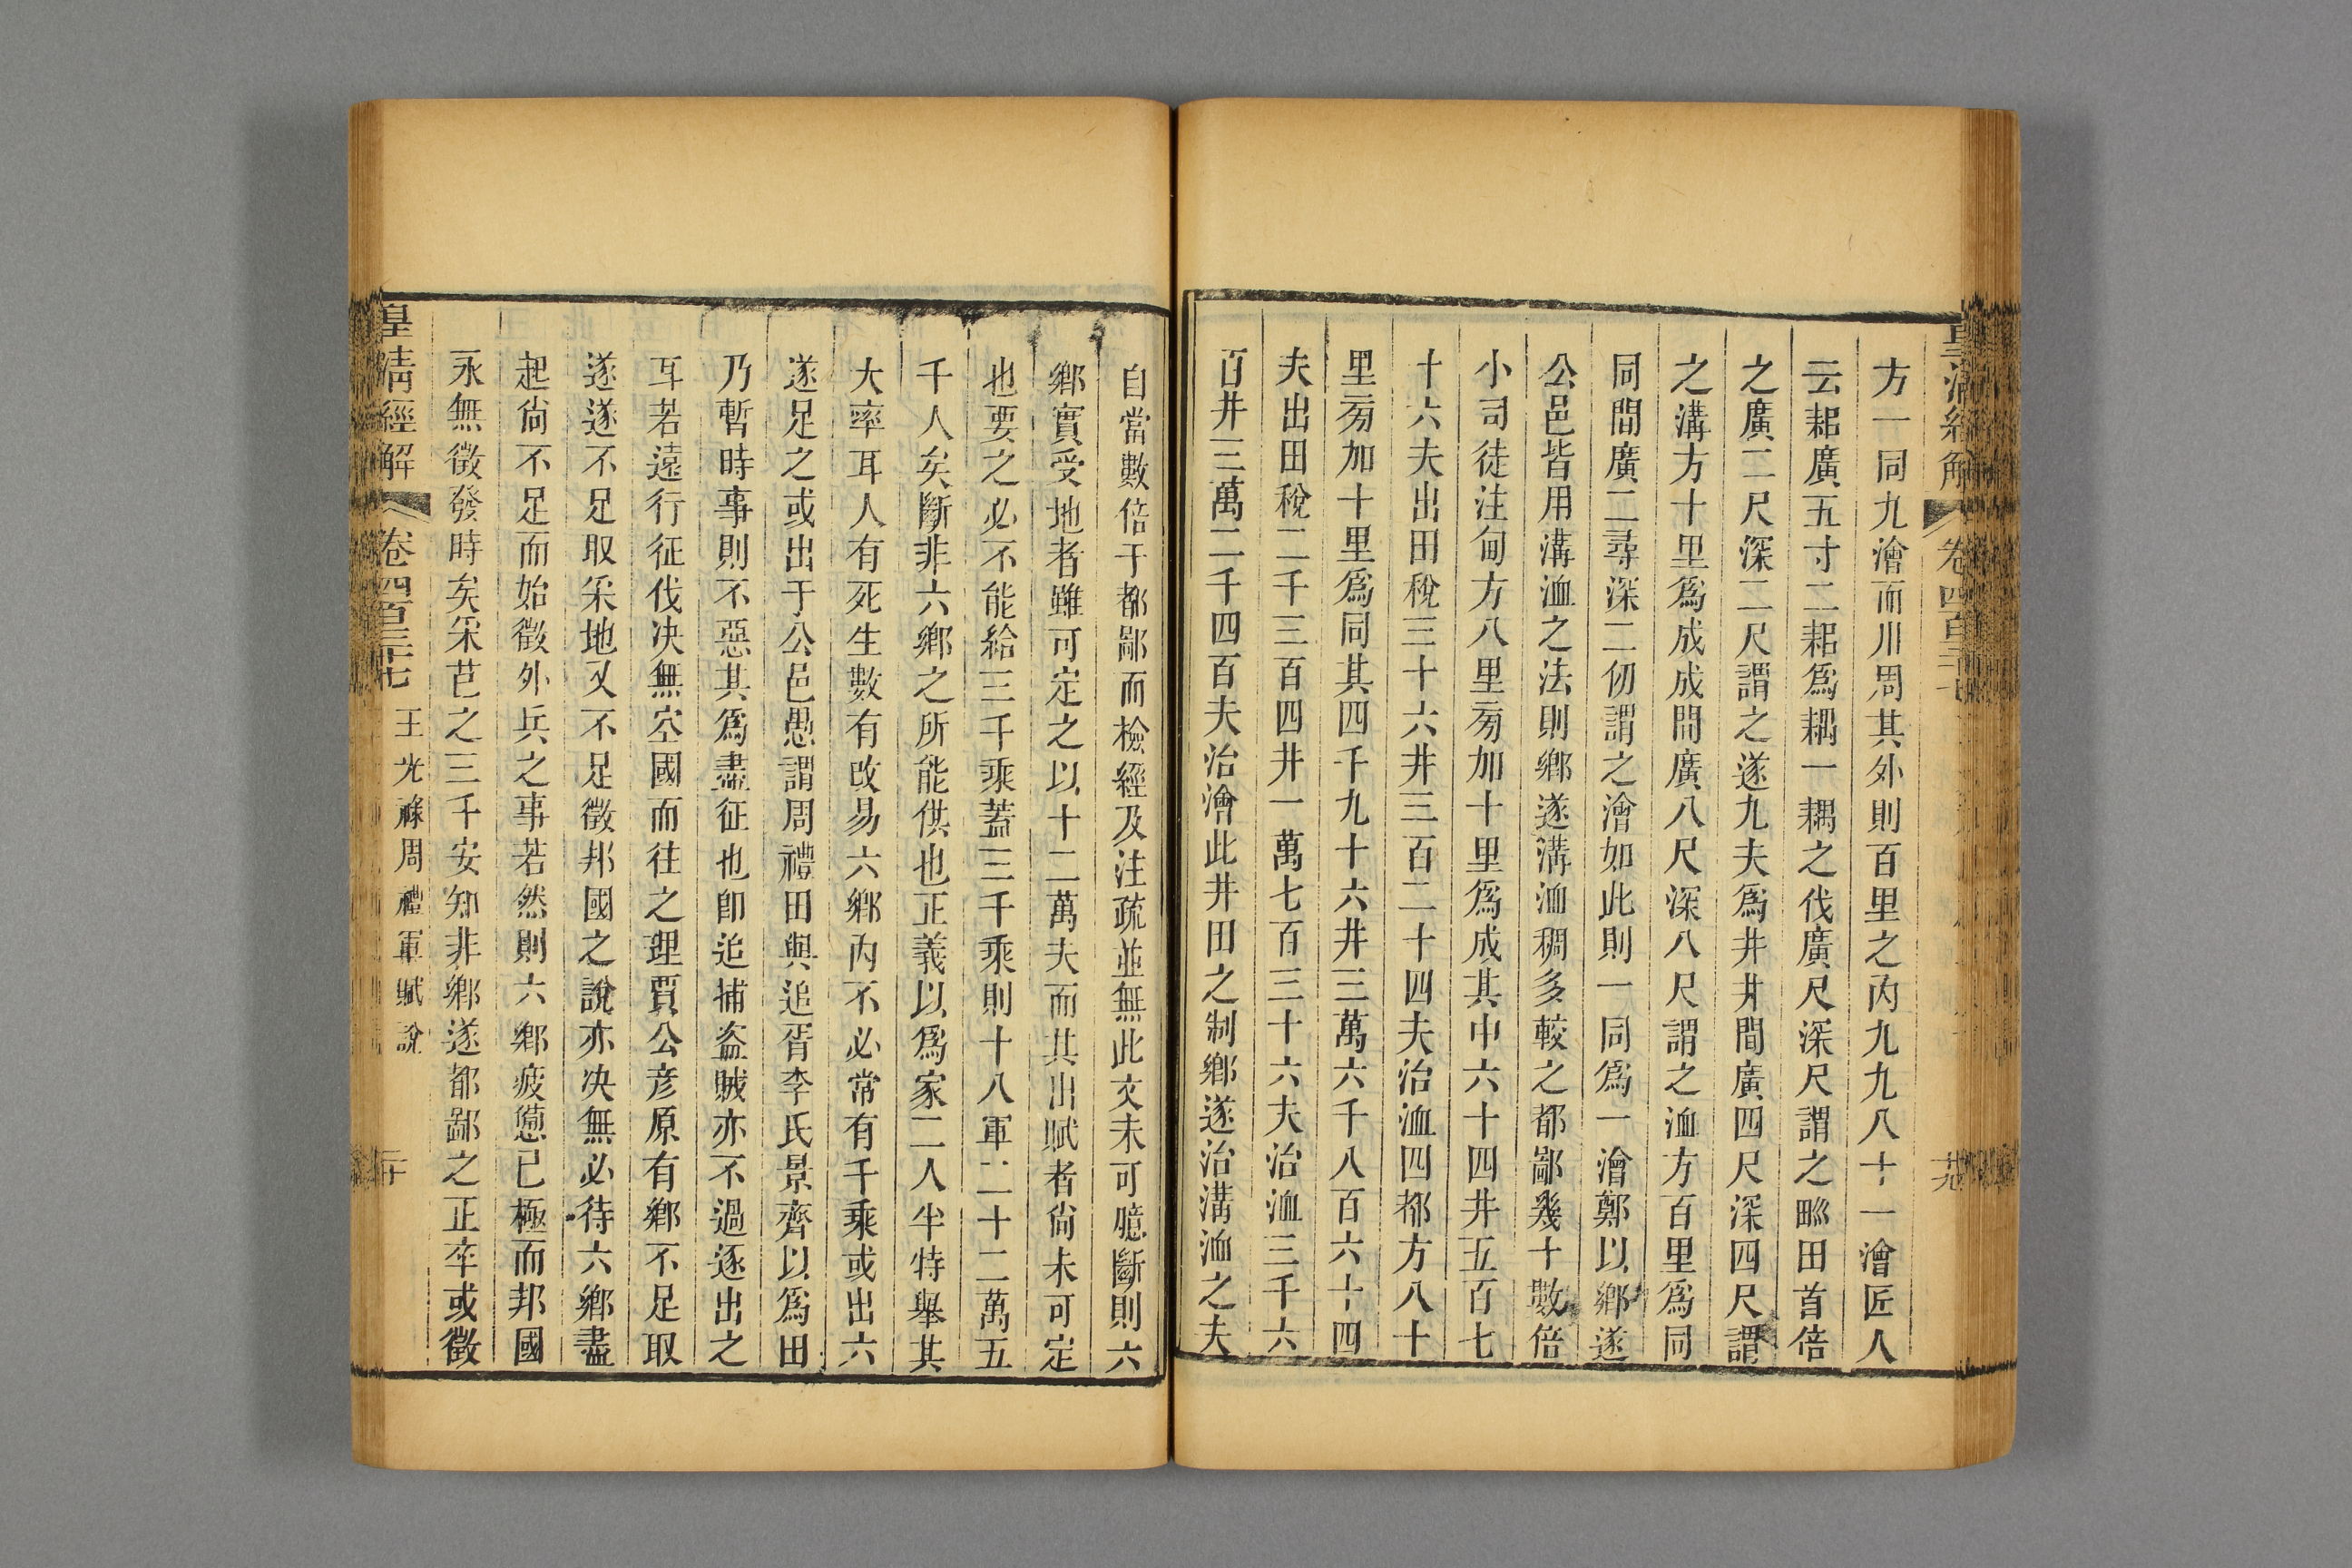 皇清經解 卷四百三十七 十九
方一同九澮而川周其外則百里之內九九八十一澮匠人
云耜廣五寸二耜爲耦一耦之伐廣尺深尺謂之𤰝田首倍
之廣二尺深二尺謂之遂九夫爲井井間廣四尺深四尺謂
之溝方十里爲成成間廣八尺深八尺謂之洫方百里爲同
同間廣二尋深二仞謂之澮如此則一同爲一澮鄭以鄉遂
公邑皆用溝洫之法則鄉遂溝洫稠多較之都鄙幾十數倍
小司徒注甸方八里㫄加十里爲成其中六十四井五百七
十六夫出田稅三十六井三百二十四夫治洫四都方八十
里㫄加十里爲同其四千九十六井三萬六千八百六十四
夫出田稅二千三百四井一萬七百三十六夫治洫三千六
百井三萬二千四百夫治澮此井田之制鄉遂治溝洫之夫
自當數倍于都鄙而檢經及注疏並無此文未可臆斷則六
鄉實受地者雖可定之以十二萬夫而其出賦者尙未可定
也要之必不能給三千乘蓋三千乘則十八軍二十二萬五
千人矣斷非六鄉之所能供也正義以爲家二人半特舉其
大率耳人有死生數有改易六鄉內不必常有千乘或出六
遂足之或出于公邑愚謂周禮田與追胥李氏景齊以爲田
乃暫時事則不惡其爲盡征也卽追捕盜賊亦不過逐出之
耳若遠行征伐决無空國而往之理賈公彥原有鄉不足取
遂遂不足取采地又不足徵邦國之說亦决無必待六鄉盡
起尙不足而始徵外兵之事若然則六鄉疲憊已極而邦國
永無徵發時矣采芑之三千安知非鄉遂都鄙之正卒或徵
皇清經解 卷四百三十七 王光祿周禮軍賦說 二十